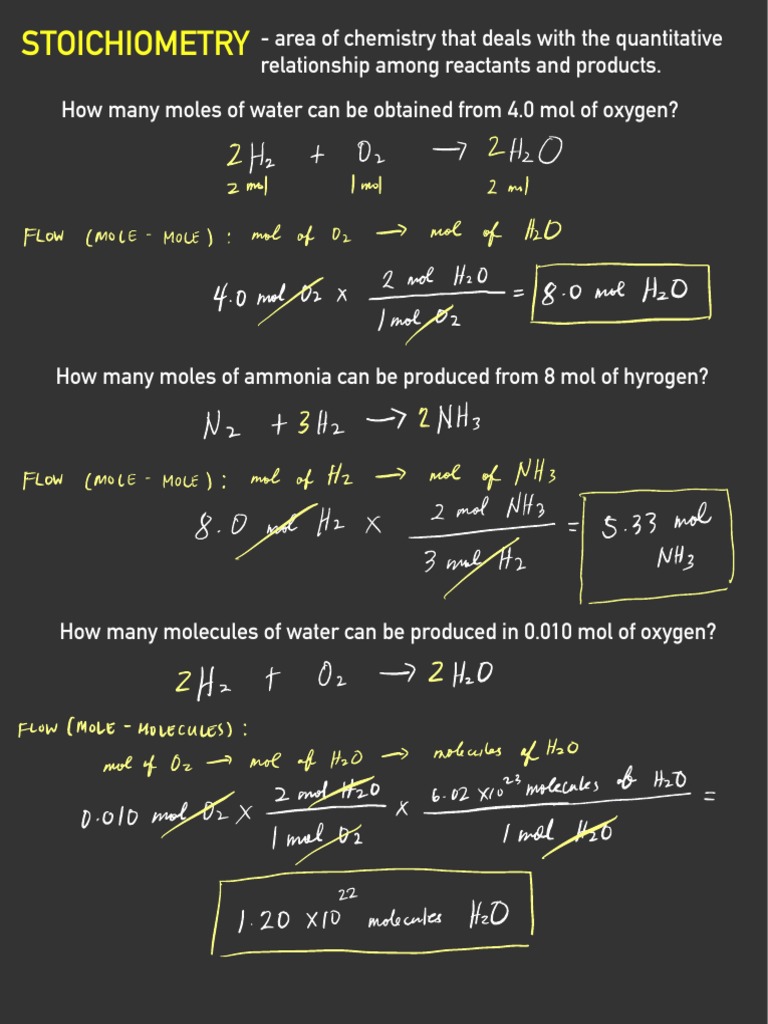 STOICHIOMETRY - area of chemistry that deals with the quantitative
relationship among reactants and products.
How many moles of water can be obtained from 4.0 mol of oxygen?
2H₂ + O₂ → 2H₂O
2 mol 1 mol 2 mol
FLOW (MOLE - MOLE) : mol of O₂ → mol of H₂O
4.0 mol O₂ x 2 mol H₂O / 1 mol O₂ = 8.0 mol H₂O
How many moles of ammonia can be produced from 8 mol of hyrogen?
N₂ + 3H₂ → 2NH₃
FLOW (MOLE - MOLE) : mol of H₂ → mol of NH₃
8.0 mol H₂ x 2 mol NH₃ / 3 mol H₂ = 5.33 mol NH₃
How many molecules of water can be produced in 0.010 mol of oxygen?
2H₂ + O₂ → 2H₂O
FLOW (MOLE - MOLECULES) :
mol of O₂ → mol of H₂O → molecules of H₂O
0.010 mol O₂ x 2 mol H₂O / 1 mol O₂ x 6.02 x10²³ molecules of H₂O / 1 mol H₂O =
1.20 x10²² molecules H₂O